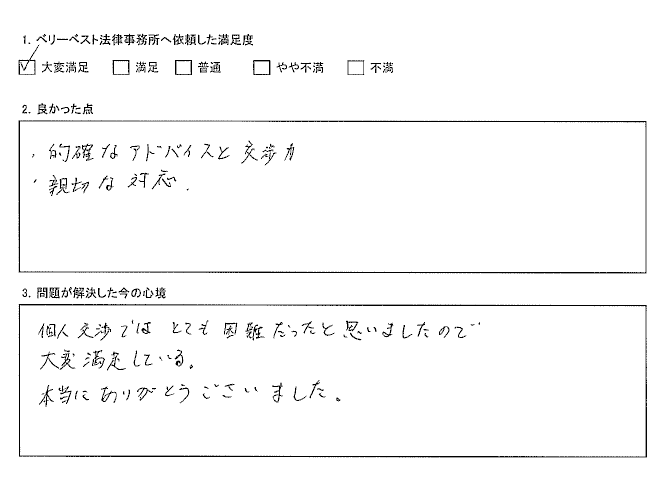 1. ベリーベスト法律事務所へ依頼した満足度
大変満足 満足 普通 やや不満 不満
2. 良かった点
・的確なアドバイスと交渉力
・親切な対応.
3. 問題が解決した今の心境
個人交渉ではとても困難だったと思いましたので
大変満足している。
本当にありがとうございました。